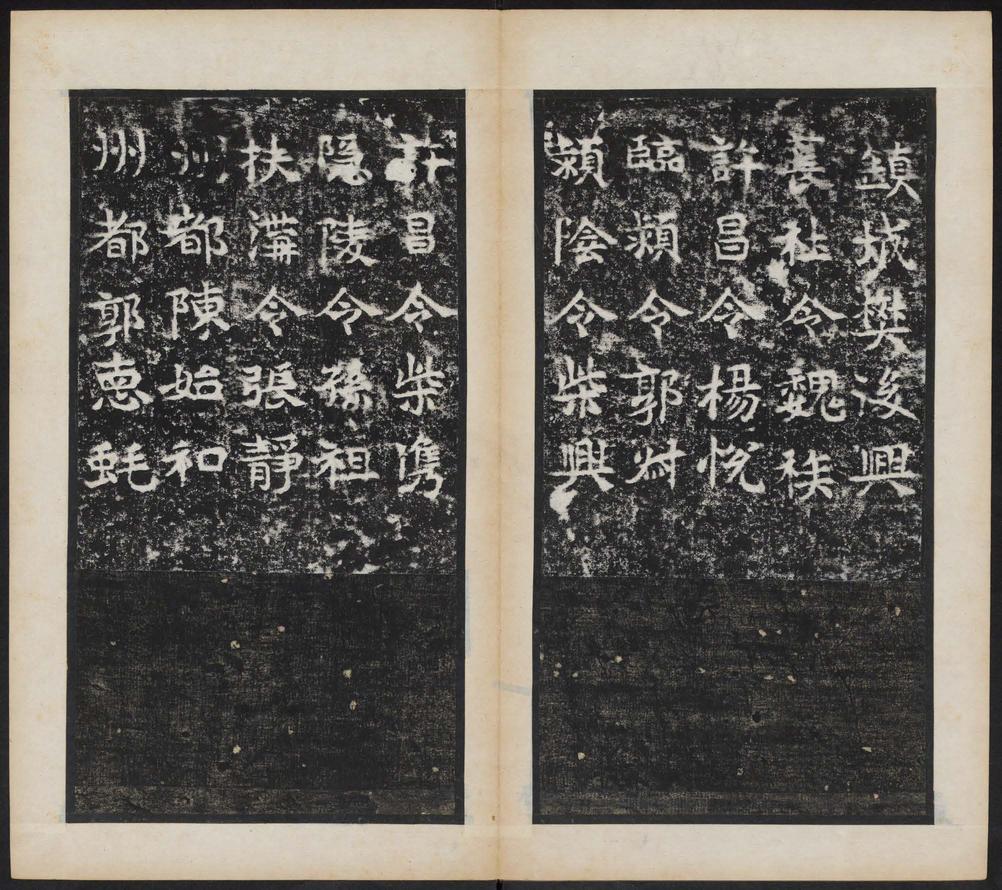 鎮城樊後興
萇社令魏
許昌令楊悅
臨潁令郭
潁陰令柴興
許昌令柴儁
隱陵令孫祖
扶溝令張靜
州都陳始和
州都郭恵蚝